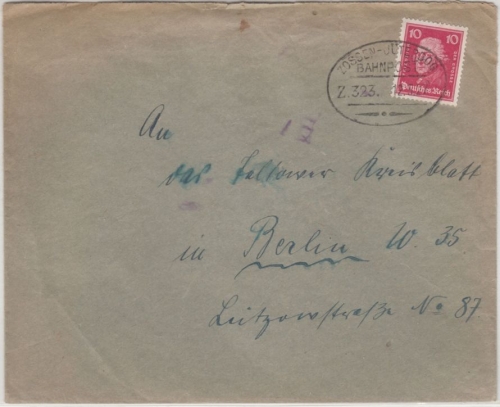 10 10
ZOSSEN-JÜTERBOG
BAHNPOST
Z.323.
Deutsches Reich
An
das Teltower Kreisblatt
in Berlin W. 35
Lützowstraße No 87